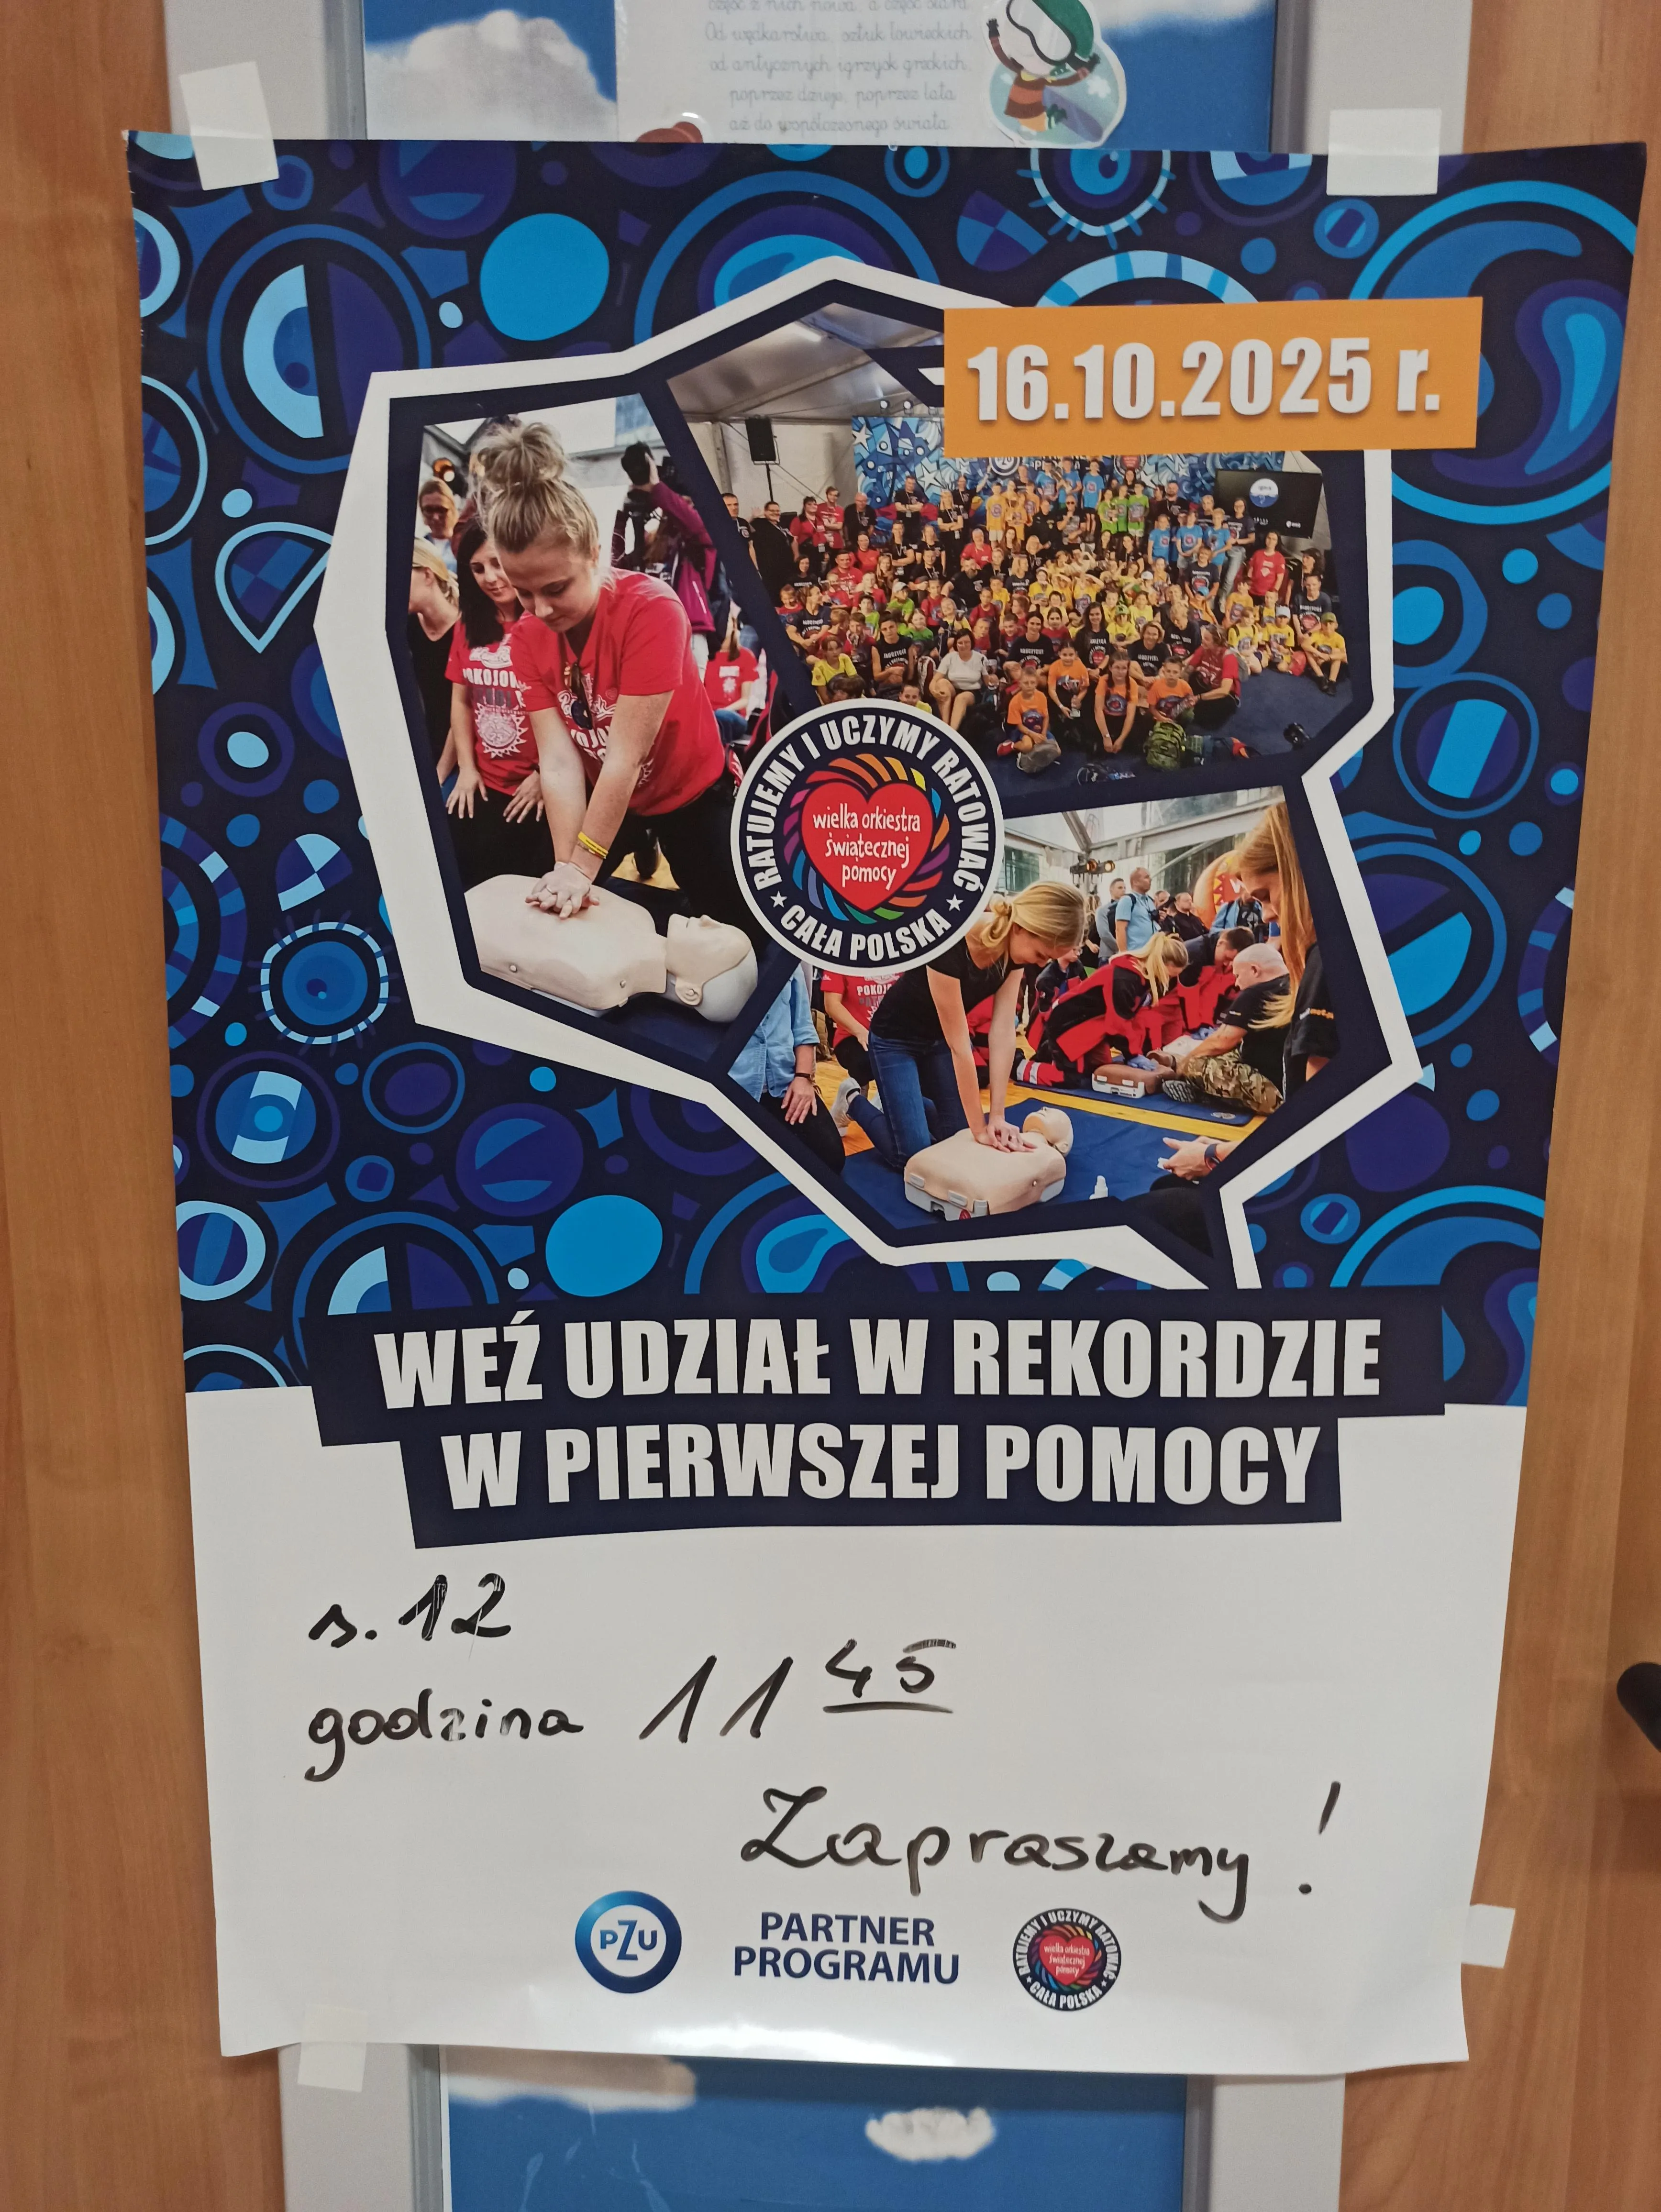 część z nich nowa, a część stara.
Od wędkarstwa, sztuk łowieckich
od antycznych igrzysk greckich,
poprzez dzieje, poprzez lata
aż do współczesnego świata
16.10.2025 r.
POKOJOW
RATUJEMY I UCZYMY RATOWAĆ
wielka orkiestra
świątecznej
pomocy
★ CAŁA POLSKA ★
POKOJO
WEŹ UDZIAŁ W REKORDZIE
W PIERWSZEJ POMOCY
s. 12
godzina 11 45
Zapraszamy!
PZU
PARTNER
PROGRAMU
RATUJEMY I UCZYMY RATOWAĆ
wielka orkiestra
świątecznej
pomocy
★ CAŁA POLSKA ★